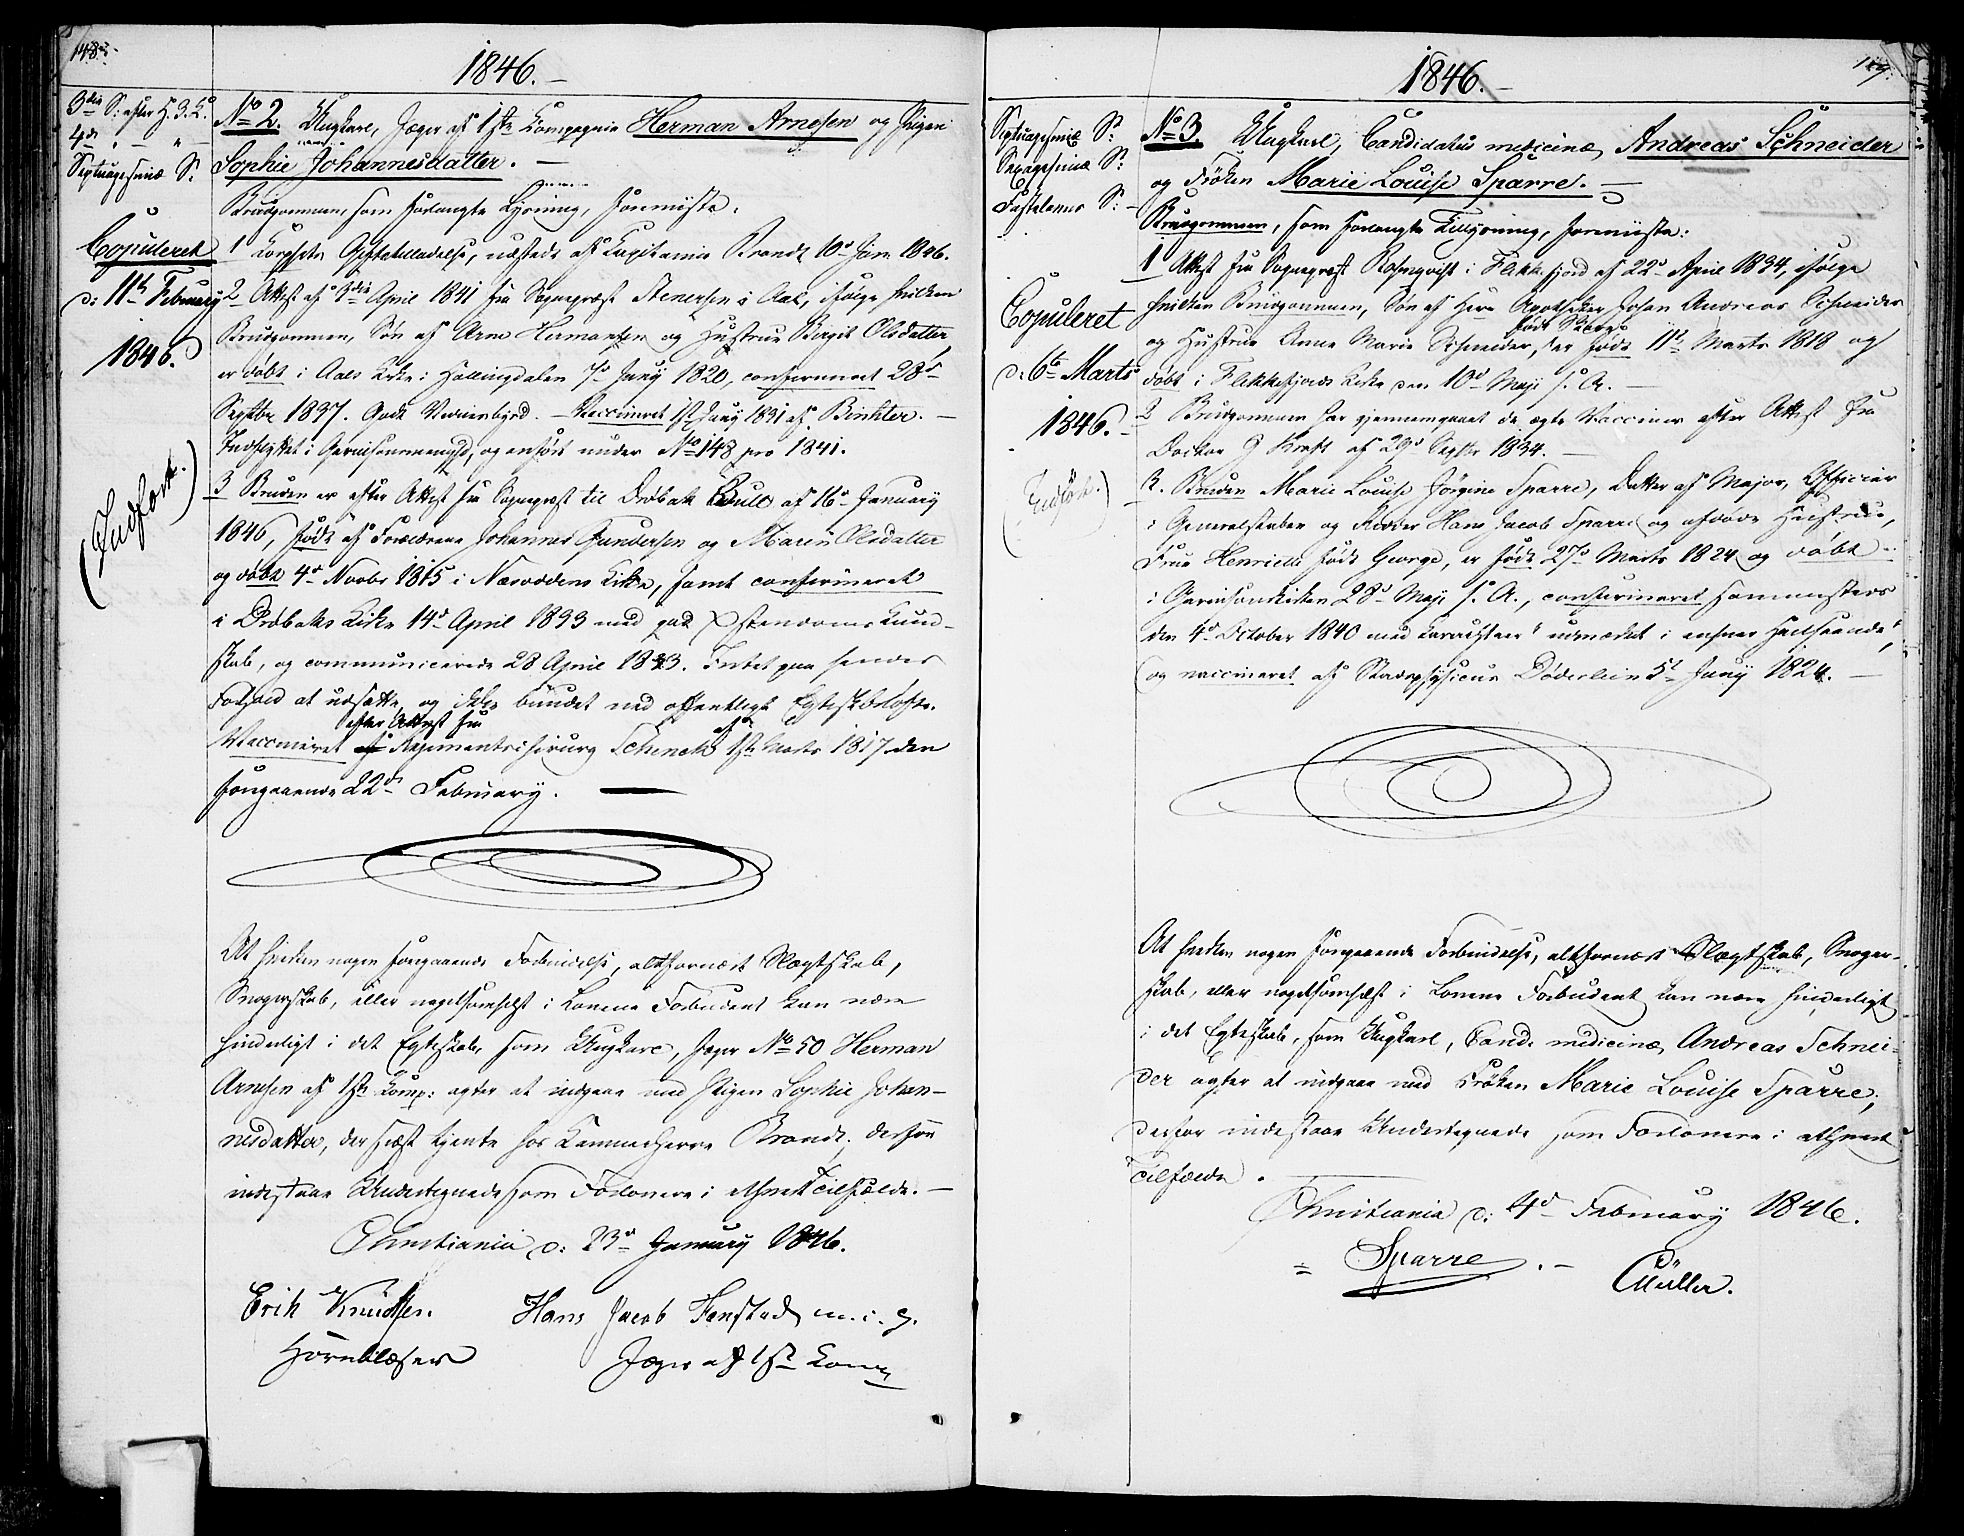 148.
1846.
3die S: efter H. 3. K.
4de " — " —
Septuagesimæ S:
Copuleret
d: 11te February
1846.
(Indført.)
No 2. Ungkarl, Jæger af 1ste Compagnie Herman Arnesen og Pigen
Sophie Johannesdatter. —
Brudgommen, som forlangte Lysning, foreviste:
1 Korpsets Giftetilladelse, udstedt af Kapitaine Brandt 10d Jan. 1846.
2 Attest af 1die April 1841 fra Sognepræst Stenersen i Aal, ifølge hvilken
Brudgommen, Søn af Arne Hermansen og Hustrue Birgit Olsdatter,
er døbt i Aals Kirke i Hallingdalen 7d Juny 1820, confirmeret 28d
Septbr 1837. Godt Vidnesbyrd. — Vaccineret 1st Juny 1831 af Binkler. —
Indflyttet i Garnisonsmenighed, og anført under No 148 pro 1841.
3 Bruden er efter Attest fra Sognepræst til Drøbak Bull af 16d January
1846, født af Forældrene Johannes Gundersen og Maren Olsdatter
og døbt 4d Novbr 1815 i Næsoddens Kirke, samt confirmeret
i Drøbaks Kirke 14d April 1833 med god Xstendoms Kund-
skab, og communicerede 28 April 1833. Intet paa hendes
Forhold at udsætte, og ikke bundet ved offentligt Egteskabsløfte.
efter Attest fra
Vaccineret af Regimentschirurg Schinck af 1ste Marts 1817 den
foregaaende 22de February. —
At hverken nogen foregaaende Forbindelse, altfornært Slægtskab,
Svogerskab, eller nogetsomhelst i Lovene Forbudent kan være
hinderligt i det Egteskab, som Ungkarl, Jæger No 50 Herman
Arnesen af 1ste Komp: agter at indgaae med Pigen Sophie Johan-
nesdatter, der sidst tjente hos Kammerherre Brandt, derfor
indestaae Undertegnede som Forlovere i ethvert Tilfælde. —
Christiania d: 23d January 1846.
Erik Knudsen.
Hornblæser
Hans Jacob Fenstad m. i. p.
Jæger af 1ste Komp
149.
1846.
Septuagesimæ S:
Sexagesimæ S:
Fastelavns S:
Copuleret
d: 6te Marts
1846.
(Indført.)
No 3. Ungkarl, Candidatus medicinæ, Andreas Schneider
og Frøken Marie Louise Sparre. —
Brudgommen, som forlangte Tillysning, foreviste:
1 Attest fra Sognepræst Rosenqvist i Flekkefjord af 22d April 1834, ifølge
hvilken Brudgommen, Søn af Herr Apotheker Johan Andreas Schneider
og Hustrue Anne Marie Schneider, født Stang, er født 11te Marts 1818 og
døbt i Flekkefjords Kirke den 10d Maji s. A. —
2 Brudgommen har gjennemgaaet de ægte Vacciner efter Attest fra
Doctor J Kraft af 29d Septbr 1834. —
3. Bruden Marie Louise Jørgine Sparre, Datter af Major, Officier
i Generalstaben og Ridder Hans Jacob Sparre og afdøde Hustrue,
Frue Henriette født George, er født 27d Marts 1824 og døbt
i Garnisonskirken 28d Maji s. A., confirmeret sammesteds
den 4d October 1840 med Karakteer "udmærket i enhver Henseende",
og vaccineret af Stadsphysicus Døderlein 5t Juny 1824. —
At hverken nogen foregaaende Forbindelse, altfornært Slægtskab, Svoger-
skab, eller nogetsomhelst i Lovene Forbudent kan være hinderligt
i det Egteskab, som Ungkarl, Cand. medicinæ, Andreas Schnei-
der agter at indgaae med Frøken Marie Louise Sparre,
derfor indestaae Undertegnede som Forlovere i ethvert
Tilfælde.
Christiania d: 4d February 1846.
Sparre. —
Müller.